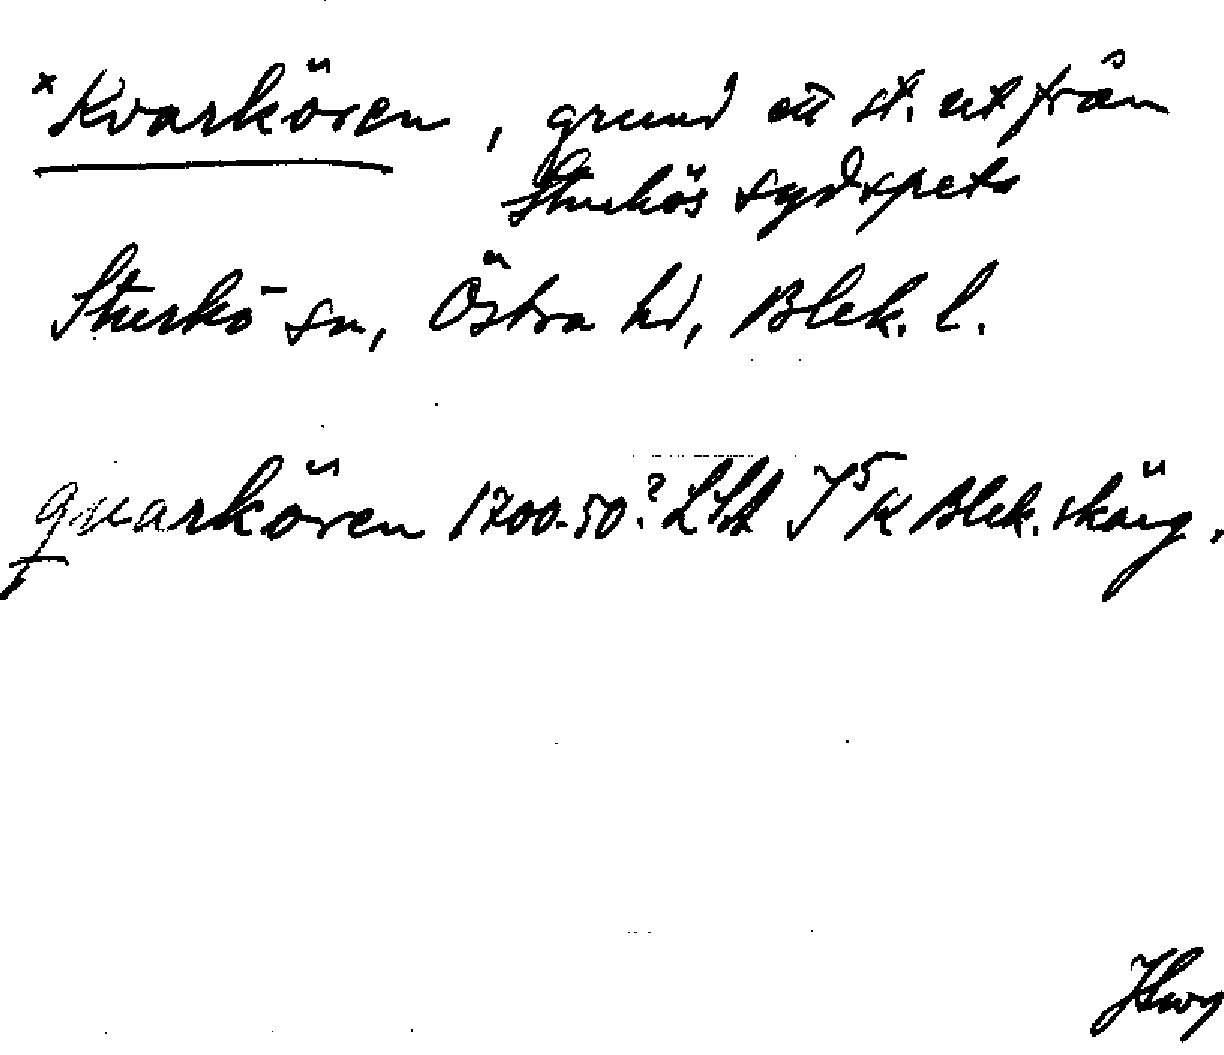 *Kvarkören, grund ett st. ut från
Sturkös sydspets
Sturkö sn, Östra hd, Blek. l.
quarkören 1700-50? LSA S⁵ K Blek. skärg.